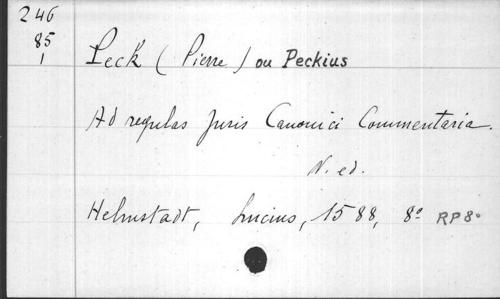 246
85
1
Peck (Pierre) ou Peckius
Ad regulas Juris Canonici Commentaria.
N. ed.
Helmstadt, Lucius, 1588, 8° RP8°